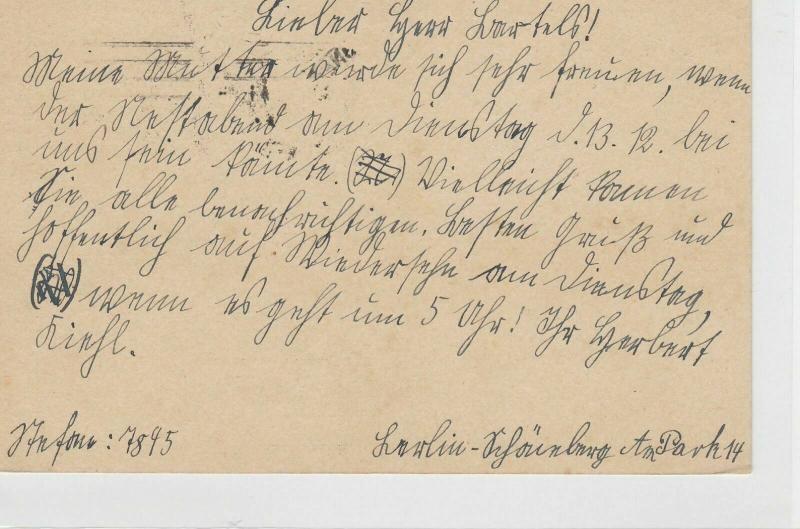 Lieber Herr Bartels!
Meine Mutter würde sich sehr freuen, wenn
der Abend am Dienstag d. 13. 12. bei
uns sein könnte. Vielleicht können
Sie alle benachrichtigen. Besten Gruß und
hoffentlich auf Wiedersehn am Dienstag,
wenn es geht um 5 Uhr! Ihr Herbert
Kiehl.
Stefan: 7845
Berlin-Schöneberg Am Park 14